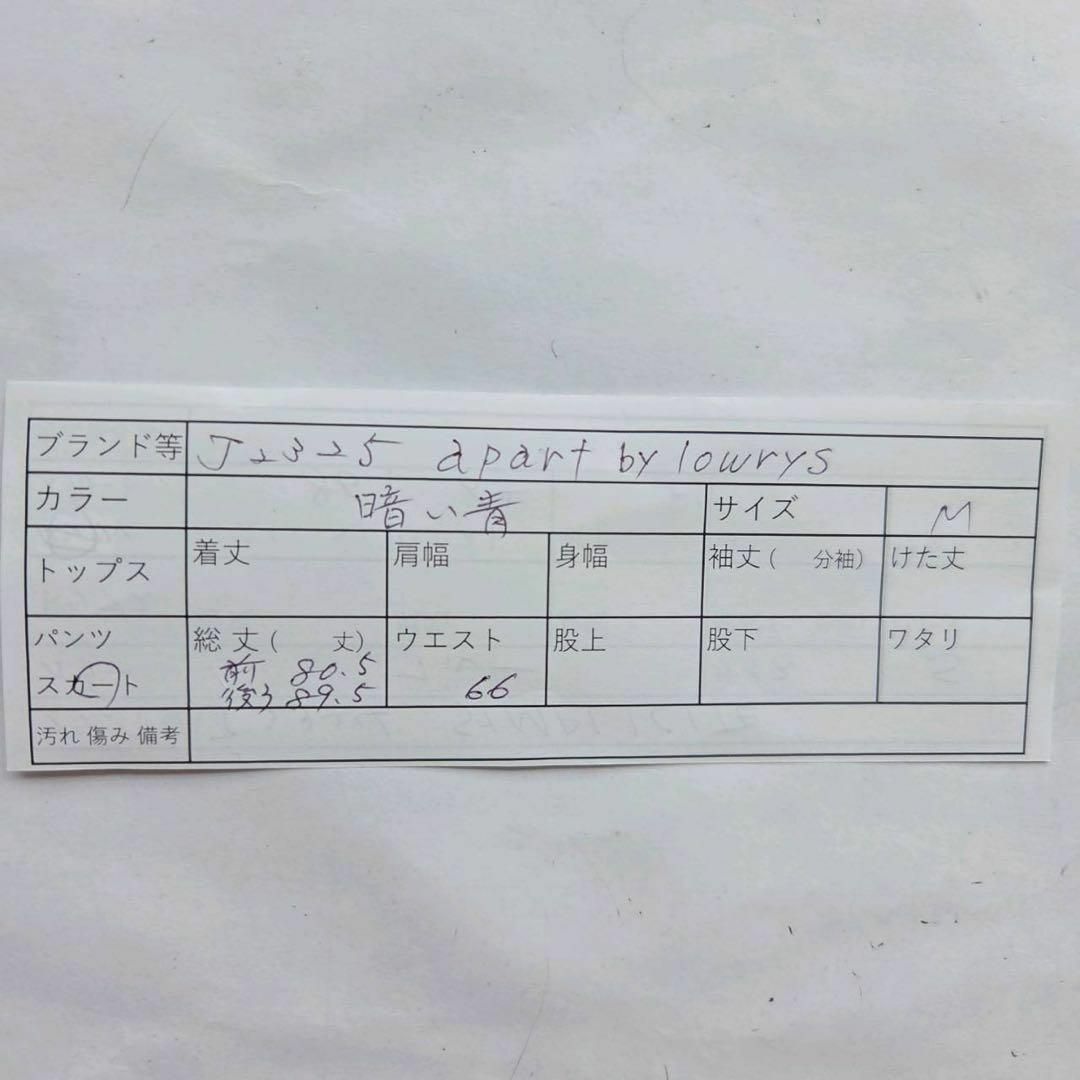 ブランド等 J2325 apart by lowrys
カラー 暗い青 サイズ M
トップス 着丈 肩幅 身幅 袖丈( 分袖) けた丈
パンツ スカート 総丈( 丈) ウエスト 股上 股下 ワタリ
前 80.5
後ろ 89.5 66
汚れ 傷み 備考